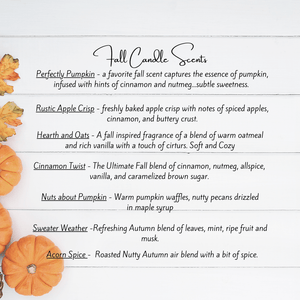 Fall Candle Scents
Perfectly Pumpkin - a favorite fall scent captures the essence of pumpkin,
infused with hints of cinnamon and nutmeg...subtle sweetness.
Rustic Apple Crisp - freshly baked apple crisp with notes of spiced apples,
cinnamon, and buttery crust.
Hearth and Oats - A fall inspired fragrance of a blend of warm oatmeal
and rich vanilla with a touch of cirturs. Soft and Cozy
Cinnamon Twist - The Ultimate Fall blend of cinnamon, nutmeg, allspice,
vanilla, and caramelized brown sugar.
Nuts about Pumpkin - Warm pumpkin waffles, nutty pecans drizzled
in maple syrup
Sweater Weather -Refreshing Autumn blend of leaves, mint, ripe fruit and
musk.
Acorn Spice - Roasted Nutty Autumn air blend with a bit of spice.